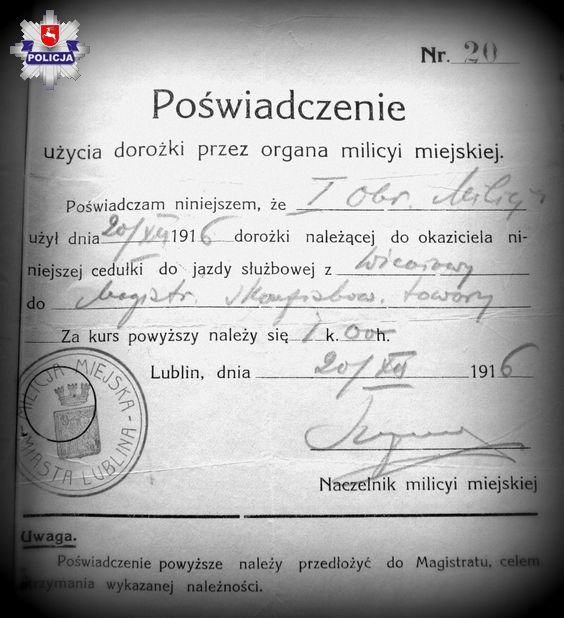 POLICJA
Nr. 20
Poświadczenie
użycia dorożki przez organa milicyi miejskiej.
Poświadczam niniejszem, że I obr. Milicji
użył dnia 20/XII 1916 dorożki należącej do okaziciela ni-
niejszej cedułki do jazdy służbowej z
do Magistr. skonfiskow. towary
Za kurs powyższy należy się 1 k. 00 h.
Lublin, dnia 20/XII 1916
MILICJA MIEJSKA - MIASTA LUBLINA -
Naczelnik milicyi miejskiej
Uwaga.
Poświadczenie powyższe należy przedłożyć do Magistratu, celem
otrzymania wykazanej należności.